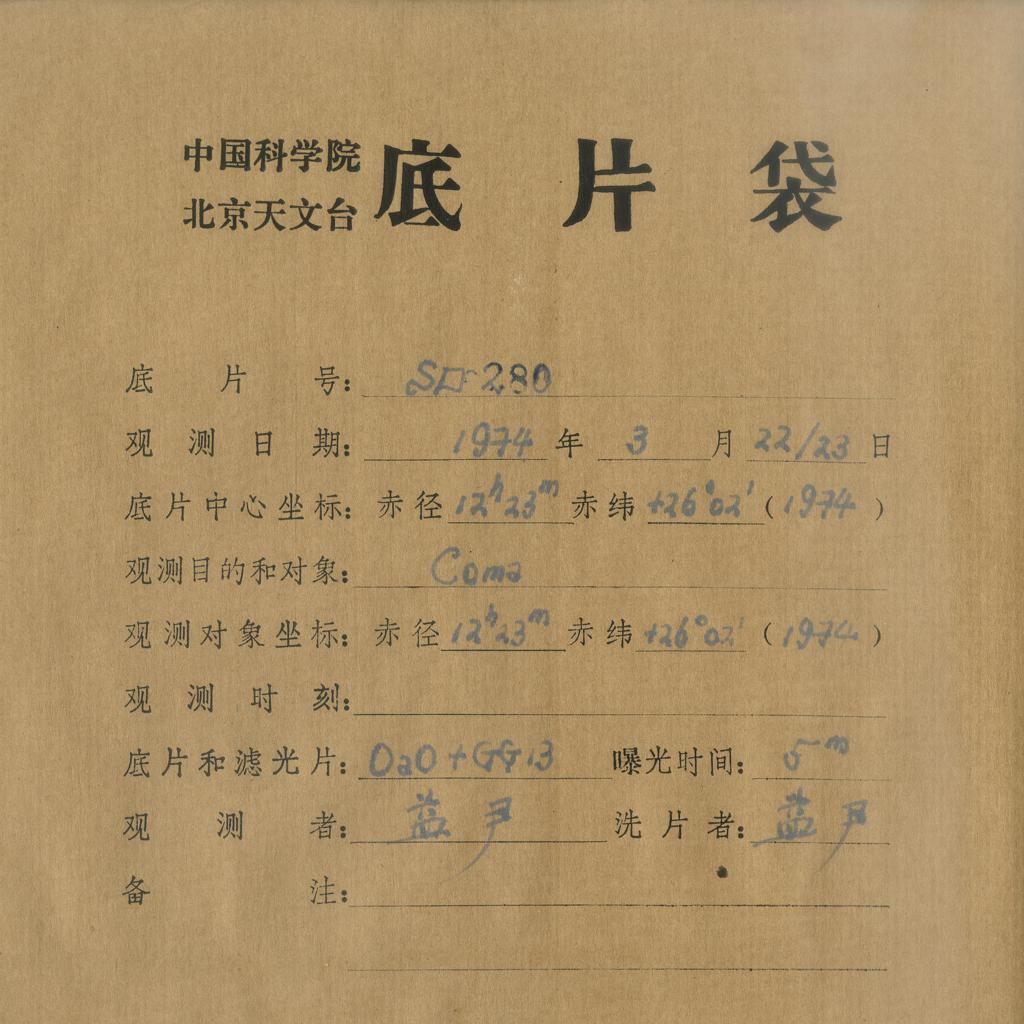 中国科学院
北京天文台
底片袋
底片号： 280
观测日期： 1974 年 3 月 22/23 日
底片中心坐标： 赤径 12ʰ23ᵐ 赤纬 +26°02′ (1974)
观测目的和对象： Coma
观测对象坐标： 赤径 12ʰ23ᵐ 赤纬 +26°02′ (1974)
观测时刻：
底片和滤光片： OaO+GG13 曝光时间： 5ᵐ
观测者： 尹 洗片者： 尹
备注：